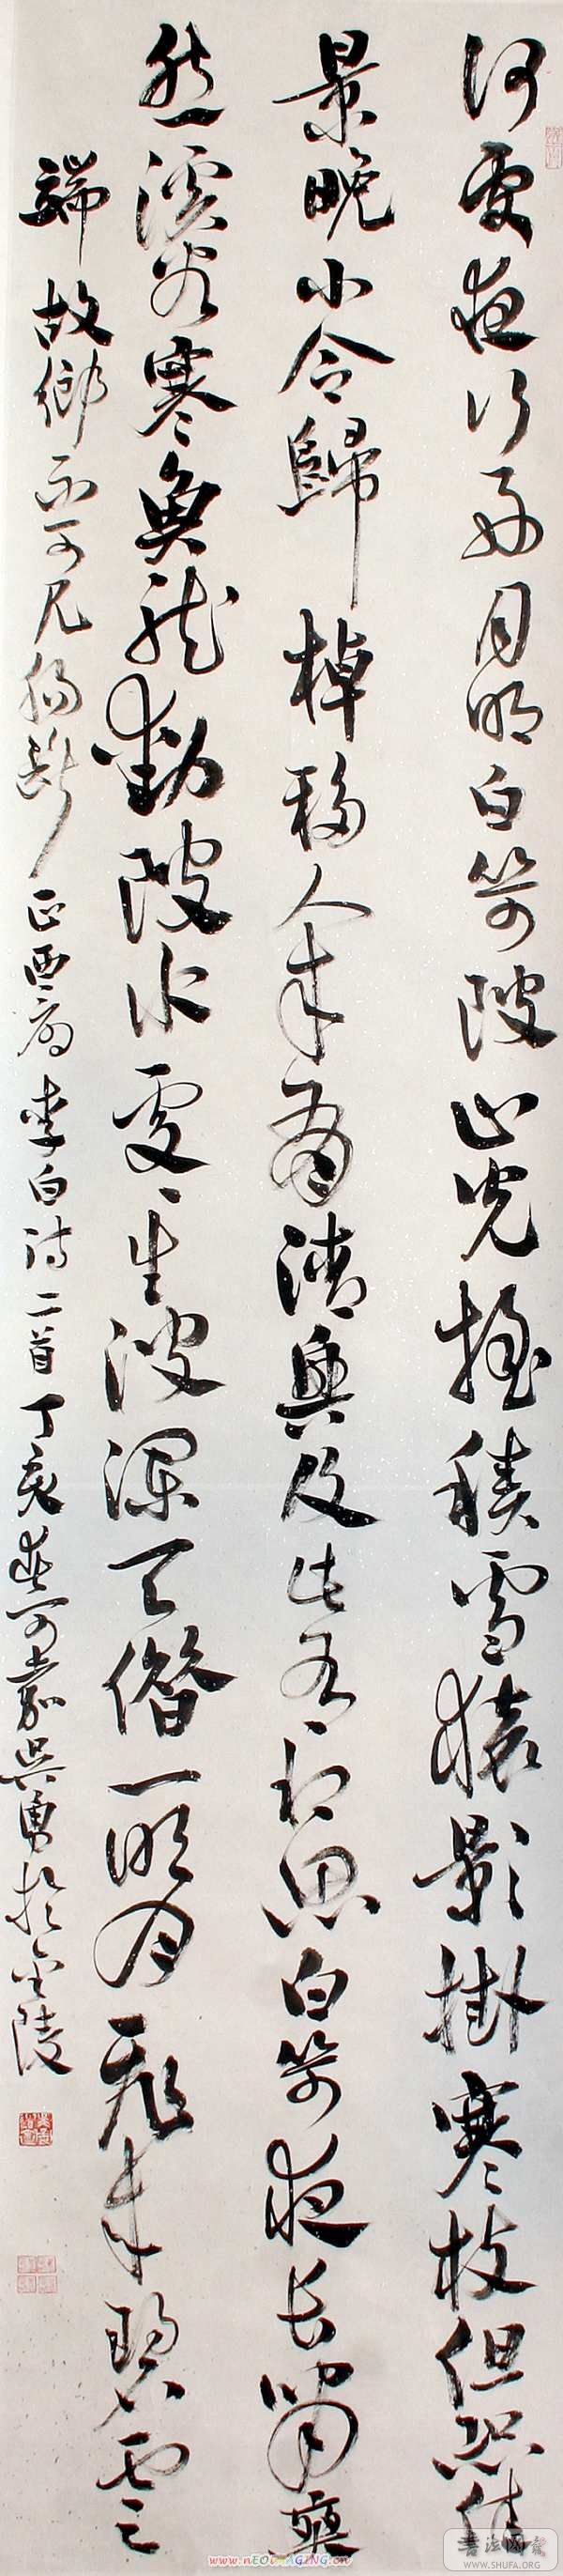 何處夜行好月明白笴陂山光搖積雪猿影掛寒枝但恐佳
景晚小令歸棹移人來有清興及此有相思白笴夜長嘯爽
然溪谷寒魚龍動陂水處〻生波瀾天借一明月飛來碧雲
端故鄉不可見腸斷正西看李白詩二首丁亥春可嘉吳勇於金陵
書法網
WWW.SHUFA.ORG
www.nEOiMAGING.cn